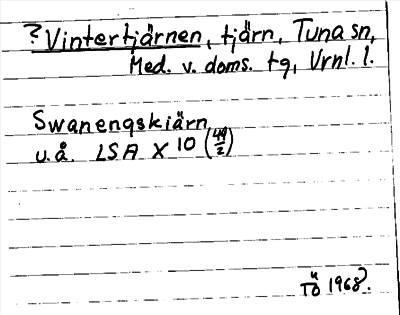 ?Vintertjärnen, tjärn, Tuna sn,
Med. v. doms. tg, Vrnl. l.
Swanengskiärn
u.å. LSA X 10 (49/2)
TÖ 1968.